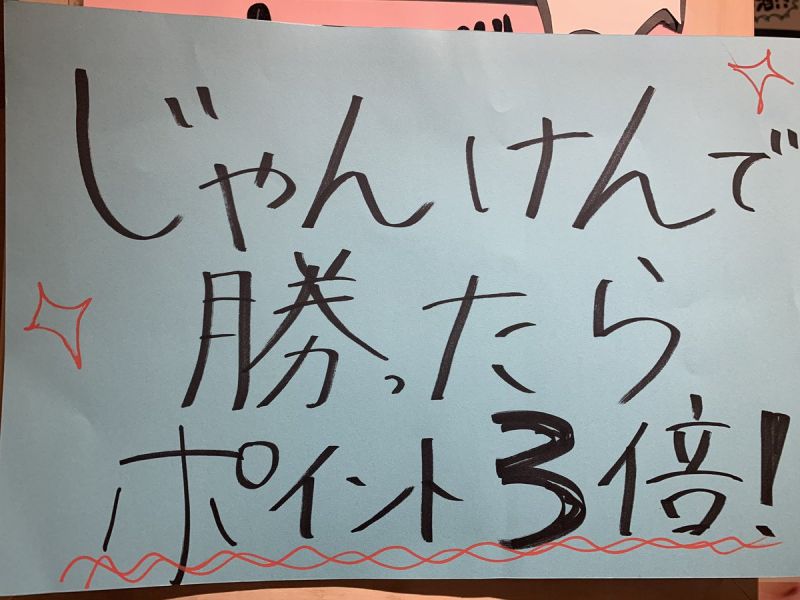 じゃんけんで
勝ったら
ポイント3倍!